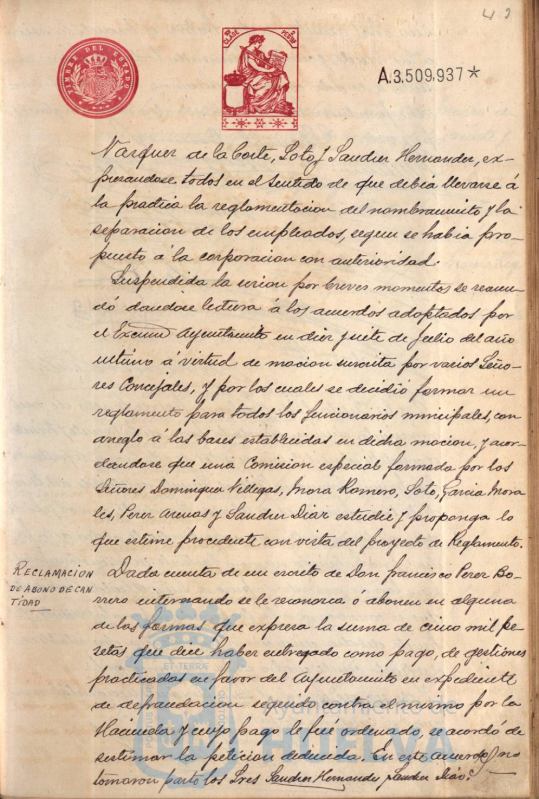 49
TIMBRE DEL ESTADO
CLASE
A.3.509.937*
Vazquez de la Corte, Soto y Sanchez Hernandez, ex-
presandose todos en el sentido de que debia llevarse á
la practica la reglamentacion del nombramiento y la
separacion de los empleados, segun se habia pro-
puesto á la corporacion con anterioridad.
Suspendida la sesion por breves momentos se reanu-
dó dandose lectura á los acuerdos adoptados por
el Excmo Ayuntamiento en diez y siete de Julio del año
ultimo á virtud de mocion suscrita por varios Seño-
res Concejales, y por los cuales se decidió formar un
reglamento para todos los funcionarios municipales, con
arreglo á las bases establecidas en dicha mocion, y acor-
dandose que una Comision especial formada por los
Señores Dominguez Villegas, Mora Romero, Soto, Garcia Mora
les, Perez Arenas y Sanchez Diaz estudie y proponga lo
que estime procedente con vista del proyecto de Reglamento.
RECLAMACION
DE ABONO DE CAN
TIDAD
Dada cuenta de un escrito de Don Francisco Perez Bo-
rrero interesando se le reconozca ó abonen en alguna
de las formas que expresa la suma de cinco mil pe
setas que dice haber entregado como pago, de gestiones
practicadas en favor del Ayuntamiento en expediente
de defraudacion seguido contra el mismo por la
Hacienda y cuyo pago le fué ordenado, se acordó de
sestimar la peticion deducida. En este acuerdo no
tomaron parte los Sres Sanchez Hernandez Sanchez Diaz.
Ayuntamiento de
HUELVA